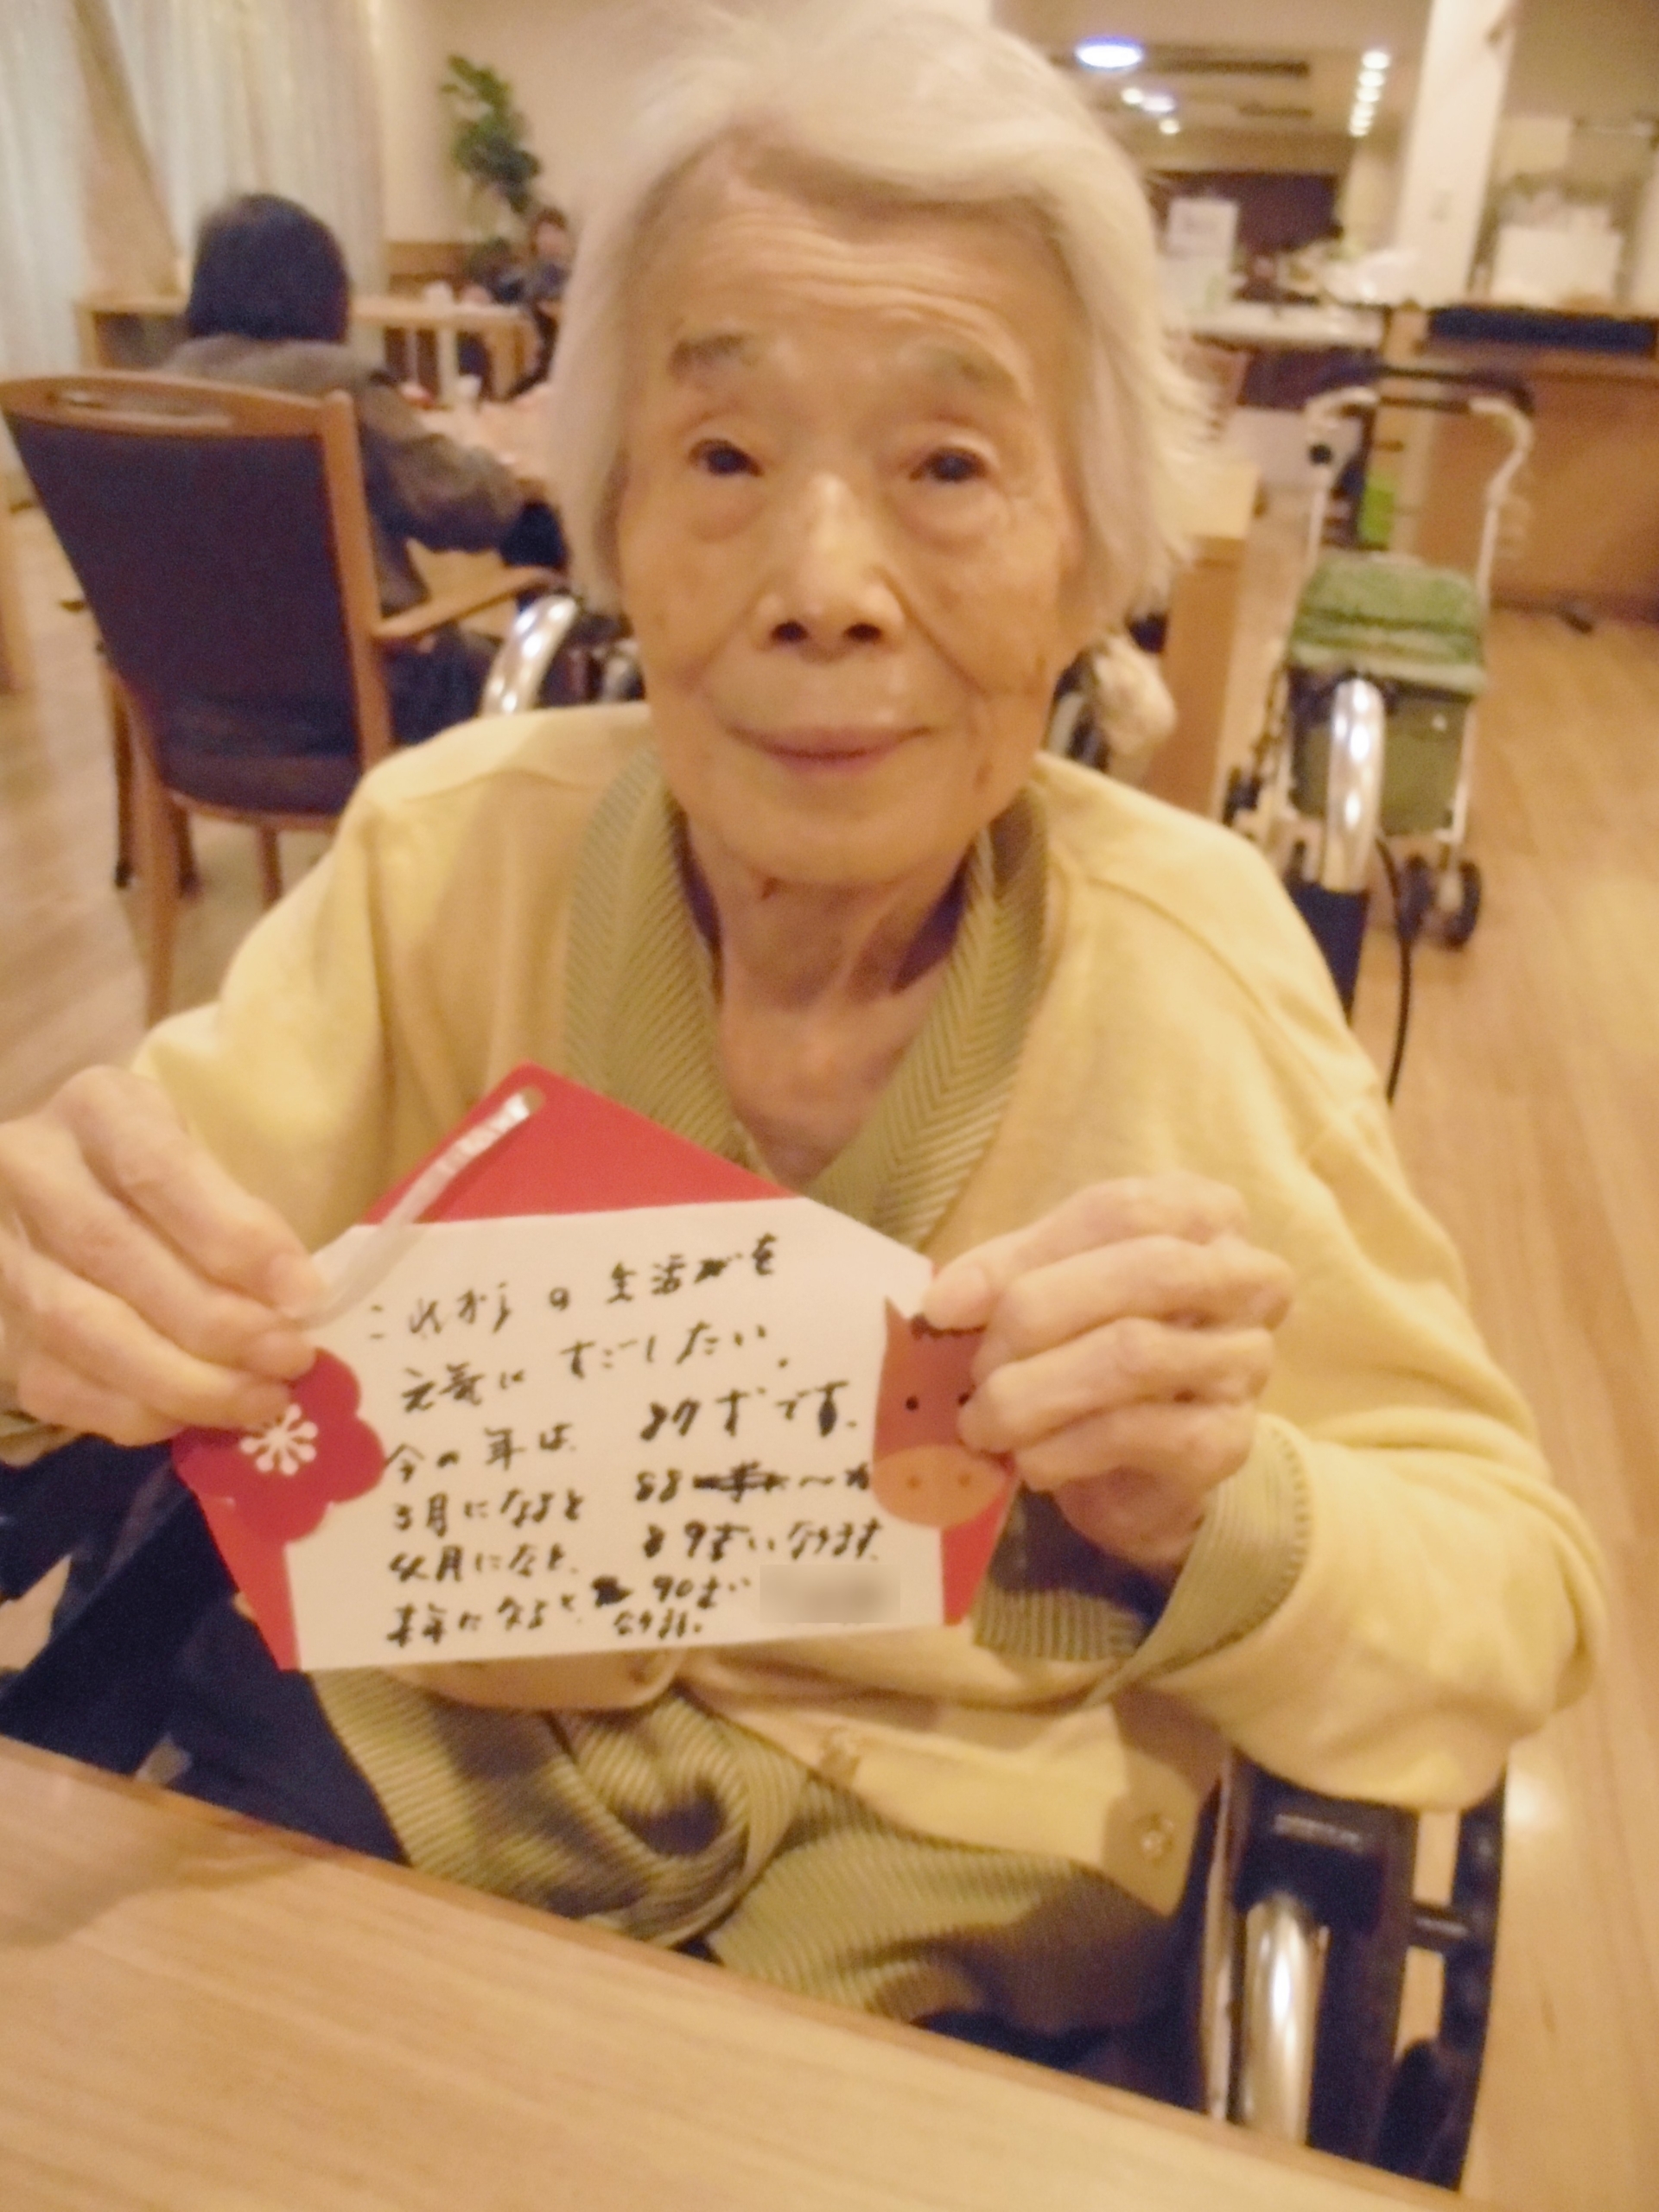 これからの生活がを
元気にすごしたい。
今の年は、87才です。
3月になると 88
4月になと、89才いなります。
来年になると、90才い
なります。